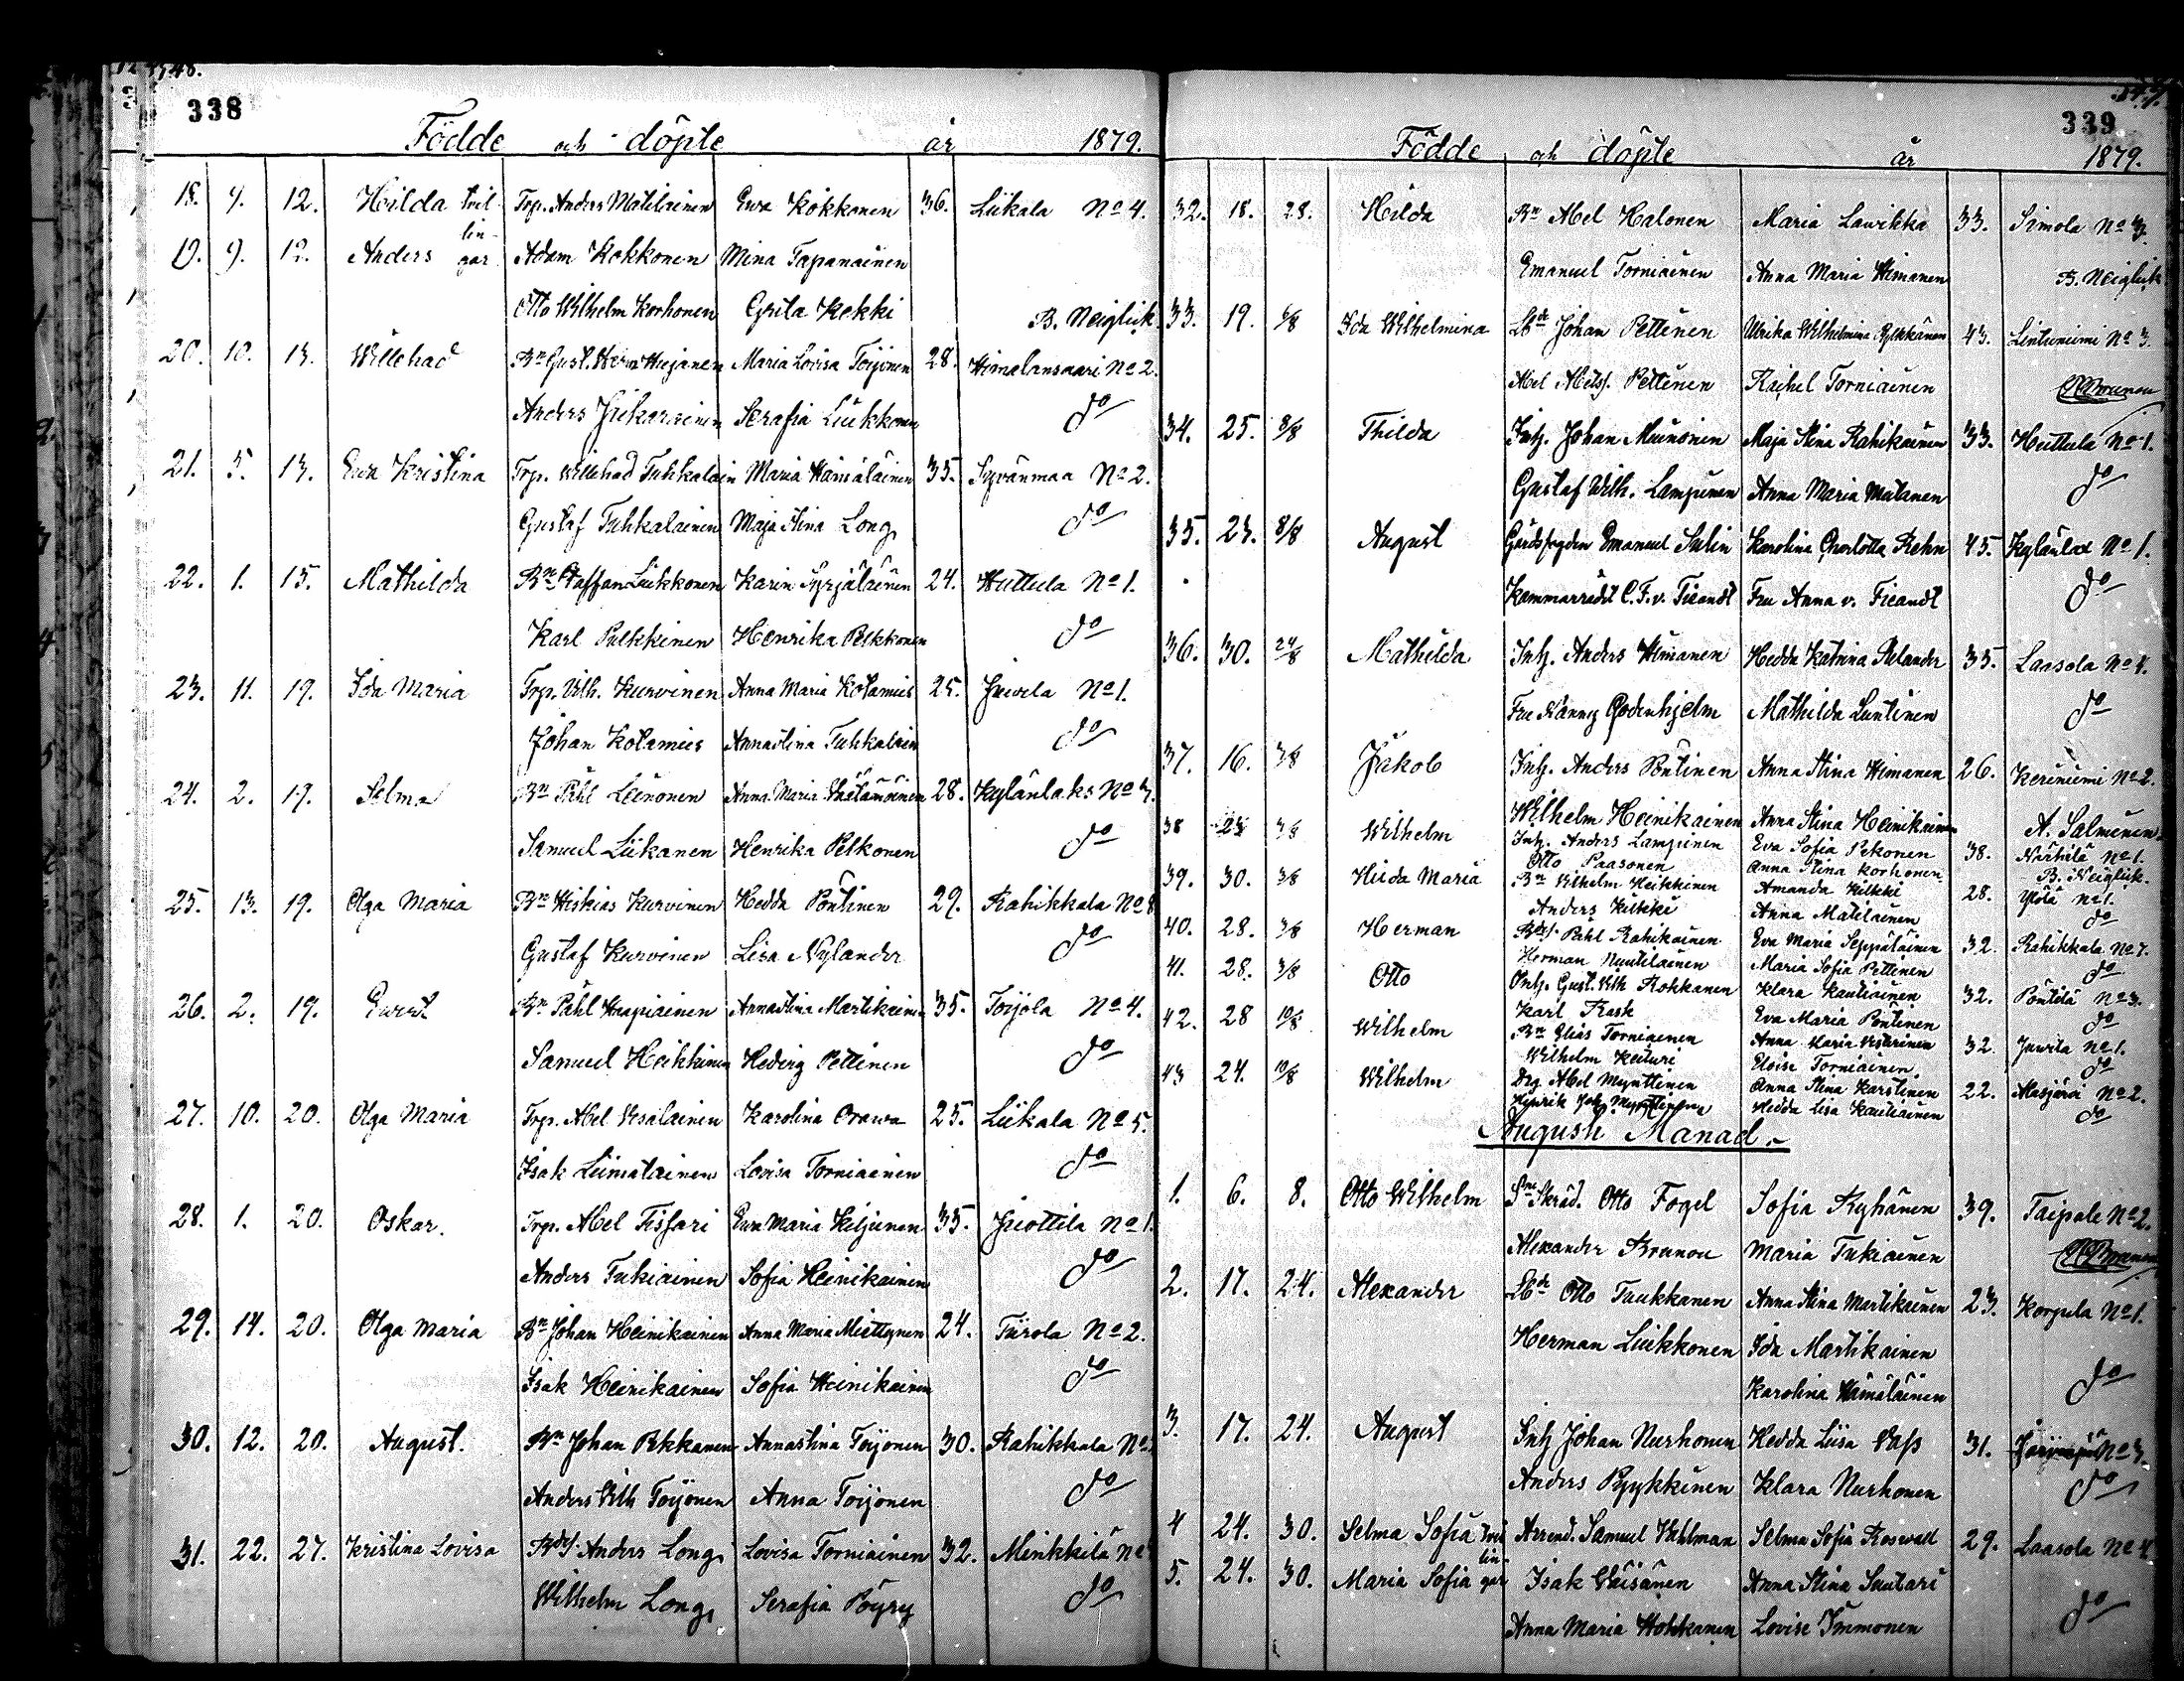 338
Födde och döpte år 1879.
18. 9. 12. Hilda tvil- Trp. Anders Matilainen Ewa Kokkonen 36. Liikala No 4.
lin-
19. 9. 12. Anders gar Adam Kokkonen Mina Tapanainen
Otto Wilhelm Korhonen Grita Kekki B. Neiglick
20. 10. 13. Willehad Bn Gust. Herm Huijanen Maria Lovisa Toijonen 28. Himalansaari No 2.
Anders Jukarainen Serafia Liukkonen do
21. 5. 13. Ewa Kristina Trp. Willehad Tuhkalain Maria Hämäläinen 35. Syvänmaa No 2.
Gustaf Tuhkalainen Maja Stina Long do
22. 1. 15. Mathilda Bn Staffan Liukkonen Karin Syrjäläinen 24. Huttula No 1.
Karl Pulkkinen Henrika Pelkkonen do
23. 11. 19. Ida Maria Trp. Vilh. Kurvinen Anna Maria Kolamies 25. Juvela No 1.
Johan Kolamies Annastina Tuhkalain do
24. 2. 19. Selma Bn Påhl Leinonen Anna Maria 28. Kylänlaks No 7.
Samuel Liikanen Henrika Pelkonen do
25. 13. 19. Olga Maria Bn Hiskias Kurvinen Hedda Pöntinen 29. Rahikkala No 8
Gustaf Kurvinen Lisa Nylander do
26. 2. 19. Ewert Bn Påhl Haapiainen Annastina Martikainen 35. Toijola No 4.
Samuel Heikkinen Hedvig Pettinen do
27. 10. 20. Olga Maria Trp. Abel Vesalainen Karolina Orawa 25. Liikala No 5.
Isak Liimatainen Lovisa Torniainen do
28. 1. 20. Oskar. Trp. Abel Tissari Ewa Maria Kiljunen 35. Juottila No 1.
Anders Tukiainen Sofia Heinikainen do
29. 14. 20. Olga Maria Bn Johan Heinikainen Anna Maria Miettynen 24. Tiirola No 2.
Isak Heinikainen Sofia Heinikainen do
30. 12. 20. August. Bn Johan Pekkanen Annastina Toijonen 30. Rahikkala No
Anders Vilh Toijonen Anna Toijonen do
31. 22. 27. Kristina Lovisa Bds. Anders Long Lovisa Torniainen 32. Minkkilä No
Wilhelm Long Serafia Pöyry do
339
Födde och döpte år 1879.
32. 18. 28. Hilda Bn Abel Halonen Maria Lavikka 33. Simola No 3.
Emanuel Torniainen Anna Maria Himanen B. Neiglick
33. 19. 6/8 Ida Wilhelmina Lbde Johan Pettinen Ulrika Wilhelmina Pylkkänen 43. Lintuniemi No 3.
Abel Abelss. Pettinen Rachel Torniainen
34. 25. 8/8 Thilda Inh. Johan Muinonen Maja Stina Rahikainen 33. Huttula No 1.
Gustaf Wilh. Lampinen Anna Maria Mutanen do
35. 23. 8/8 August Gårdsfogden Emanuel Sulin Karolina Charlotta Rehn 45. Kylänlax No 1.
Kammarrådet C. F. v. Ficandt Fru Anna v. Ficandt do
36. 30. 24/8 Mathilda Inh. Anders Himanen Hedda Katrina Relander 35. Laasola No 4.
Fru Fanny Godenhjelm Mathilda Luntinen do
37. 16. 3/8 Jakob Inh. Anders Pöntinen Anna Stina Himanen 26. Keriniemi No 2.
Wilhelm Heinikainen Anna Stina Heinikainen A. Salminen
38 23 3/8 Wilhelm Inh. Anders Lampinen Eva Sofia Pekonen 38. Närhilä No 1.
Otto Paasonen Anna Stina Korhonen B. Neiglick.
39. 30. 3/8 Hilda Maria Bn Vilhelm Heikkinen Amanda Kilkki 28. Ylölä No 1.
Anders Kilkki Anna Matilainen do
40. 28. 3/8 Herman Bds. Påhl Rahikainen Eva Maria Seppäläinen 32. Rahikkala No 7.
Herman Nuutilainen Maria Sofia Pettinen do
41. 28. 3/8 Otto Inh. Gust. Vilh Kokkanen Klara Kautiainen 32. Pöntilä No 3.
Karl Rask Eva Maria Pöntinen do
42. 28 10/8 Wilhelm Bn Elias Torniainen Anna Maria Vesterinen 32. Juvila No 1.
Wilhelm Keituri Eloise Torniainen do
43 24. 10/8 Wilhelm Drg. Abel Mynttinen Anna Stina Karstinen 22. Alasjärvi No 2.
Henrik Joh. Mynttinen Hedda Lisa Kautiainen do
Augusti Månad.
1. 6. 8. Otto Wilhelm Sne Skräd. Otto Fogel Sofia Ryhänen 39. Taipale No 2.
Alexander Brunou Maria Tukiainen
2. 17. 24. Alexander Lbde Otto Taukkanen Anna Stina Martikainen 23. Korpela No 1.
Herman Liukkonen Ida Martikainen
Karolina Hämäläinen do
3. 17. 24. August Inh Johan Nurhonen Hedda Liisa Vass 31. No 3.
Anders Pyykkinen Klara Nurhonen do
4 24. 30. Selma Sofia tvil Arrend. Samuel Vahlman Selma Sofia Roswall 29. Laasola No 4
lin
5. 24. 30. Maria Sofia gar Isak Väisänen Anna Stina Suutari
Anna Maria Hokkanen Lovise Immonen do